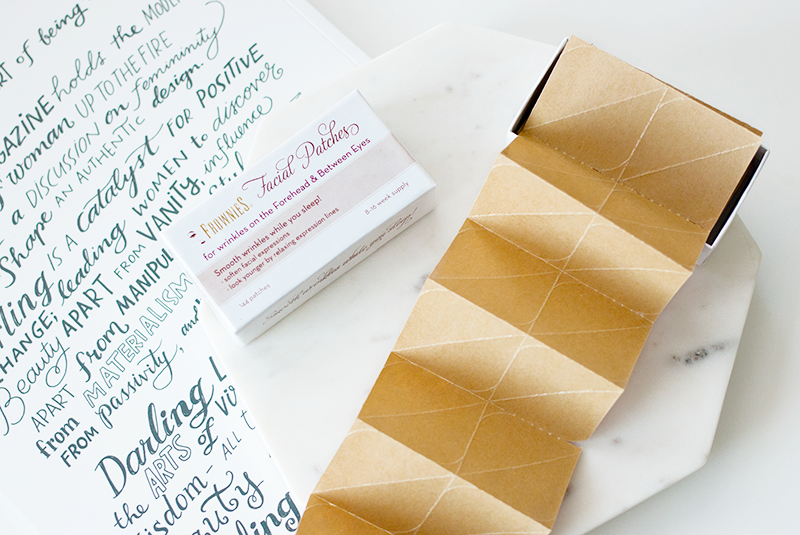 ART of being
GAZINE holds the MODER
woman UP TO THE FIRE
a DISCUSSION on femininity
AN AUTHENTIC design.
Shape a Catalyst FOR POSITIVE
ling IS A WOMEN to discover
CHANGE; leading VANITY, influence
Beauty APART FROM MANIPUL
APART from MATERIALISM
from passivity, and
FROM
Darling
the ARTS of
wisdom - ALL
beauty
FROWNIES Facial Patches
for wrinkles on the Forehead & Between Eyes
Smooth wrinkles while you sleep!
· soften facial expressions
· look younger by relaxing expression lines
144 patches
8-16 week supply